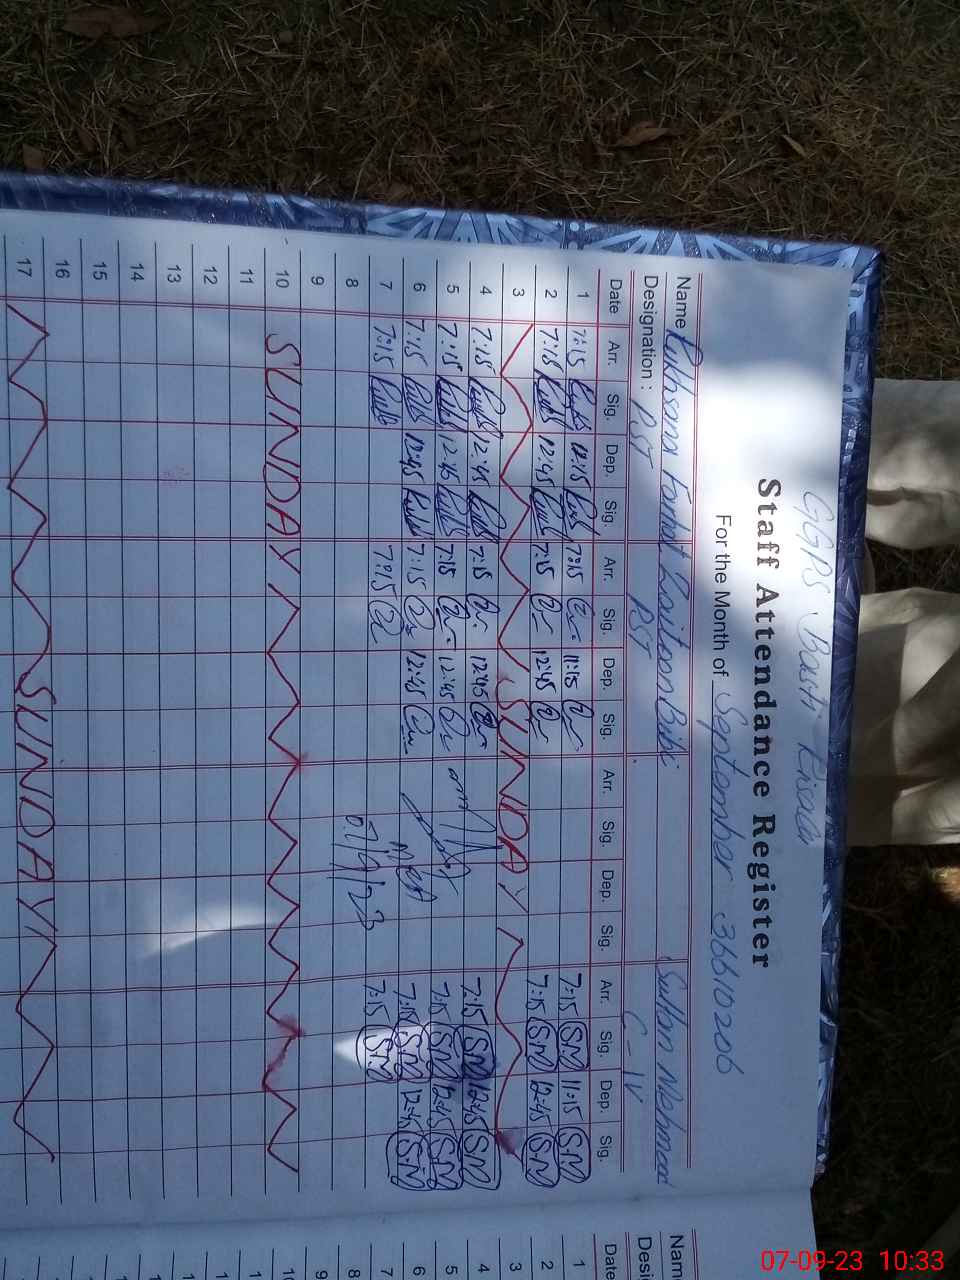 GGPS Basti Risalu
Staff Attendance Register
For the Month of September 36610206
Name Rukhsana Farhat Zaitoon Bibi Sultan Mehmood
Designation : PST PST C-IV
Date Arr. Sig. Dep. Sig. Arr. Sig. Dep. Sig. Arr. Sig. Dep. Sig. Arr. Sig. Dep. Sig.
1 7:15 12:15 7:15 11:15 7:15 S.M 11:15 S.M
2 7:15 12:45 7:15 12:45 7:15 S.M 12:45 S.M
3 SUNDAY
4 7:15 12:45 7:15 12:45 7:15 S.M 12:45 S.M
5 7:15 12:45 7:15 12:45 7:15 S.M 12:45 S.M
6 7:15 12:45 7:15 12:45 7:15 S.M 12:45 S.M
7 7:15 7:15 7:15 S.M
8 07/9/23
9
10 SUNDAY
11
12
13
14
15
16
17 SUNDAY
Name
Desig
Date
1
2
3
4
5
6
7
8
9
07-09-23 10:33